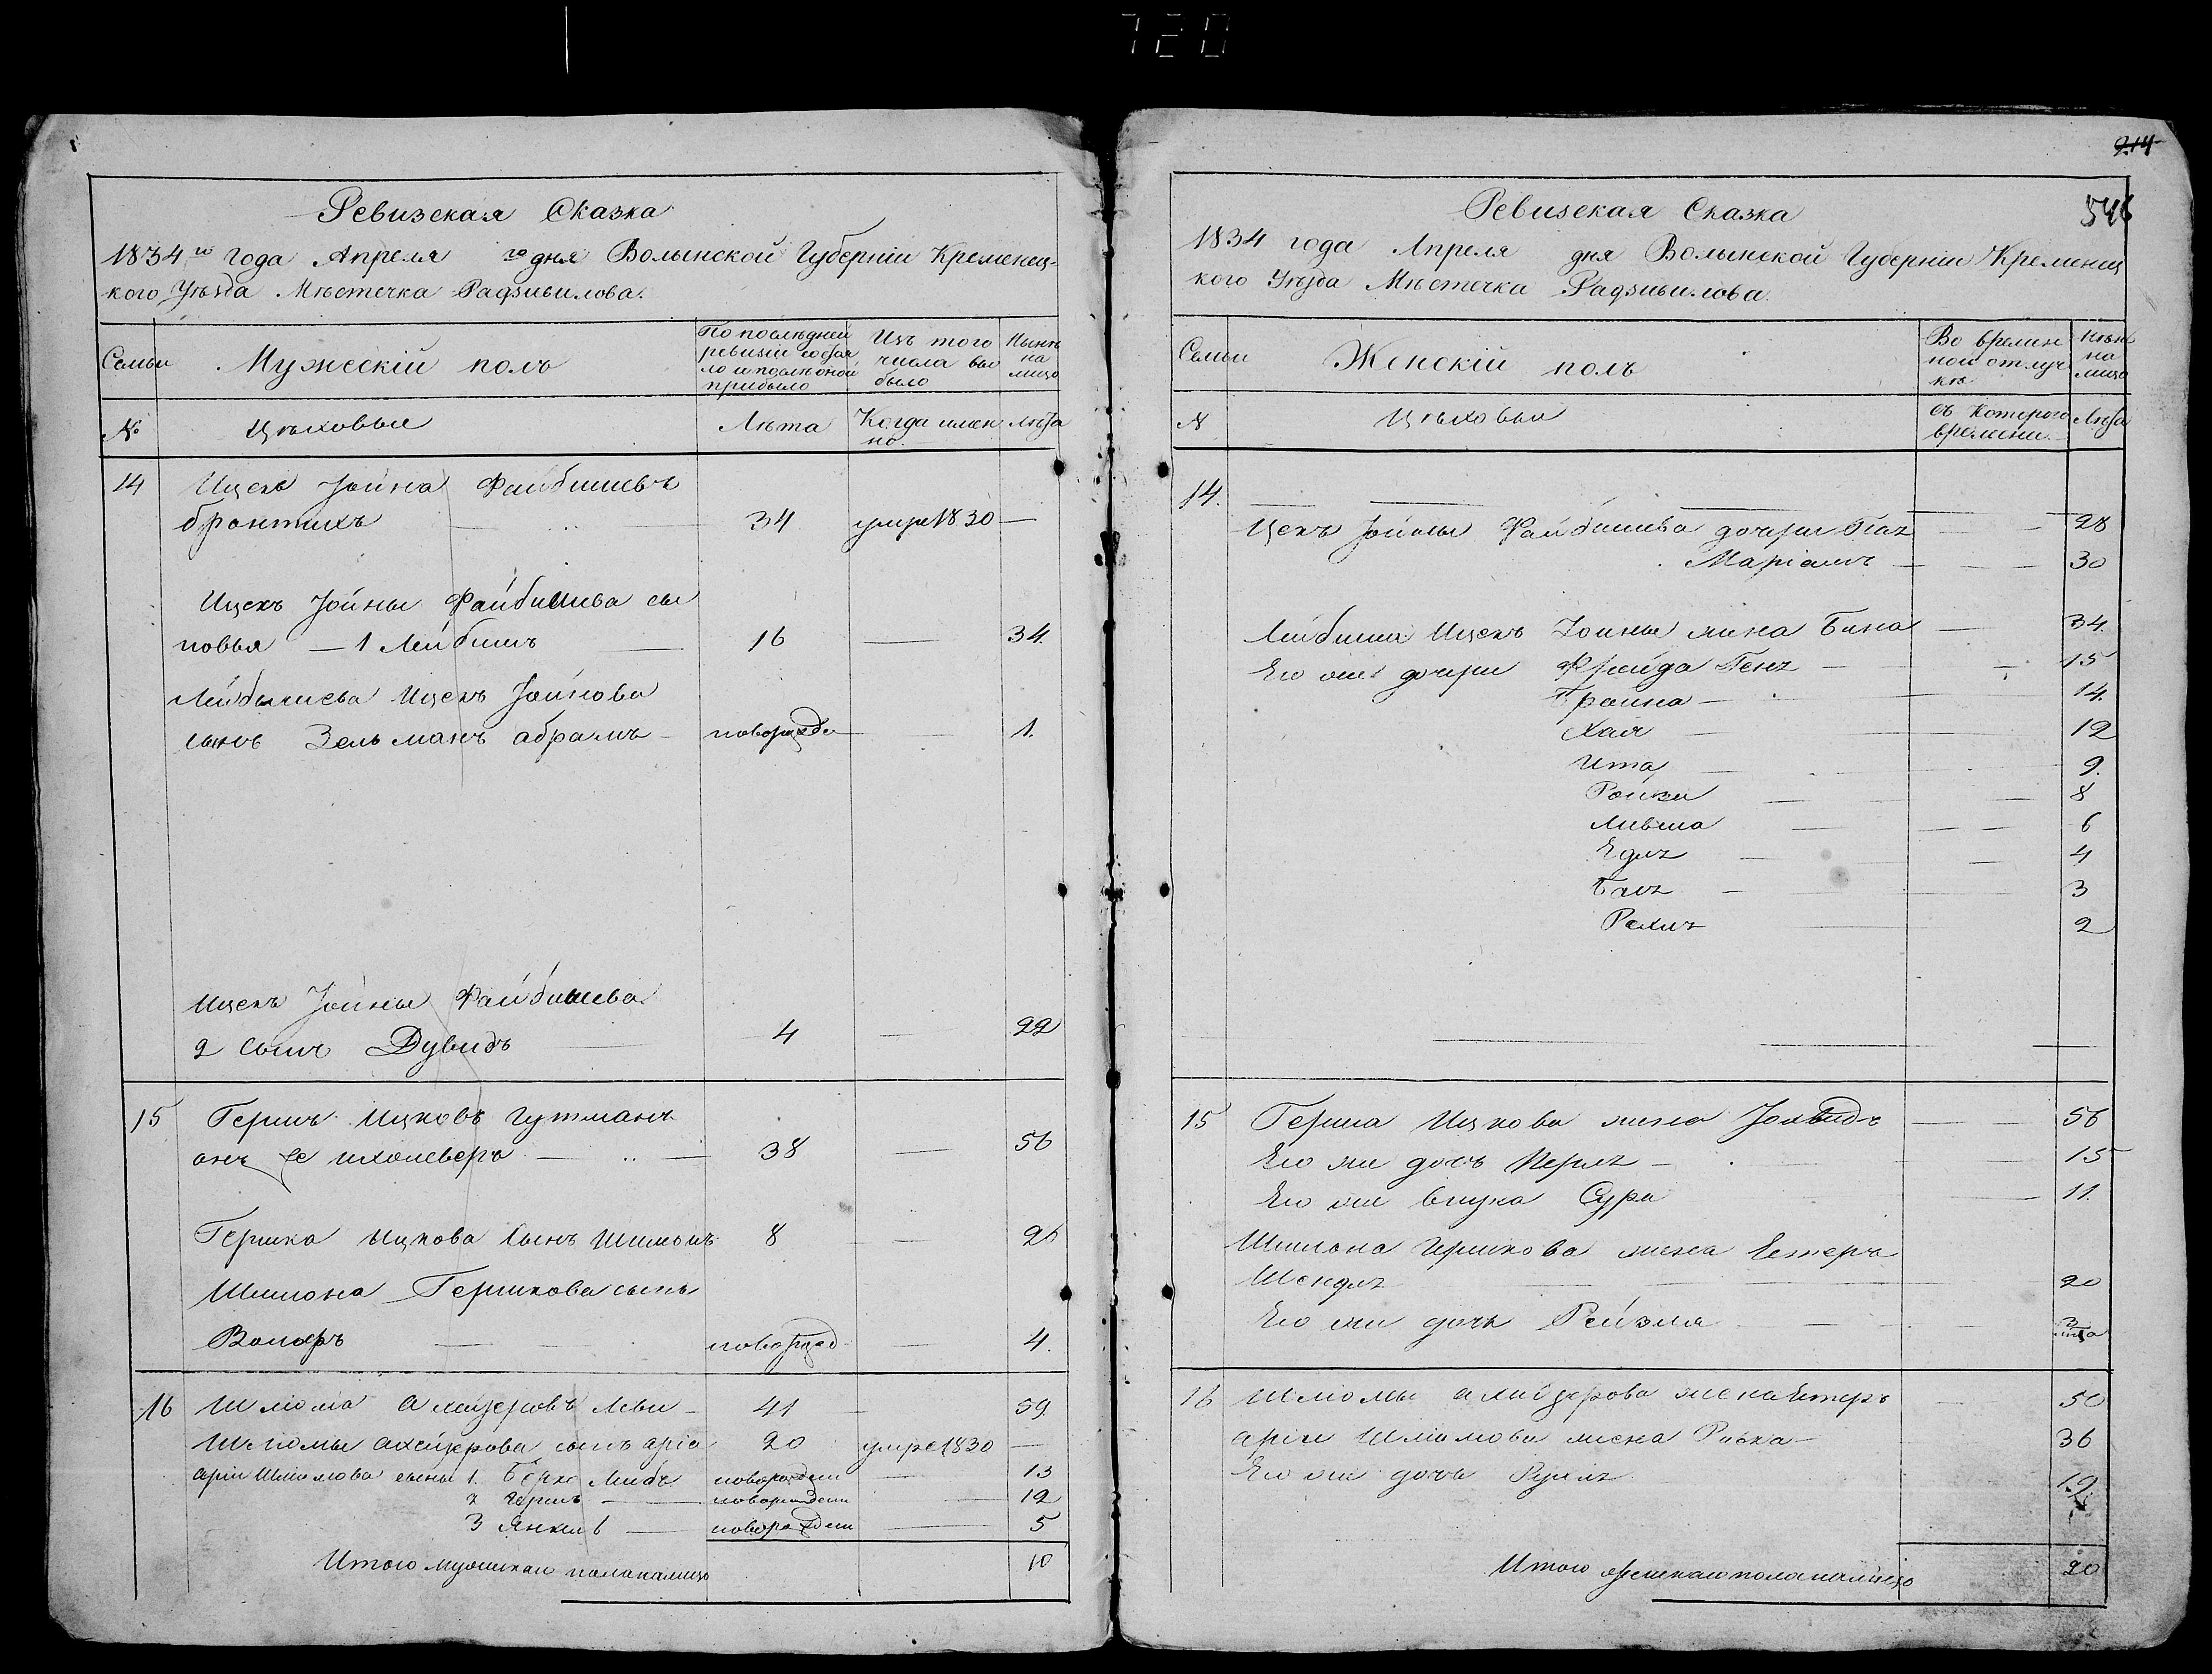 720
Ревизская Сказка
1834го года Апреля го дня Волынской Губерніи Кременец-
кого Уѣзда Мѣстечка Радзивилова.
Семьи
Мужескій полъ
По послѣдней
ревизіи состоя
ло и послѣ оной
прибыло
Изъ того
числа вы
было
Нынѣ
на
лицо
№
Цѣховые
Лѣта
Когда имен
но.
Лѣта
14 Ицекъ Іойна Файбишевъ
бронтихъ 34 умре 1830
Ицекъ Іойны Файбишева сы
новья 1 Лейбишъ 16 34
Лейбишева Ицекъ Іойнова
сынъ Зельманъ абрамъ 1.
Ицекъ Іойны Файбишева
2 сынъ Дувидъ 4 22
15 Гершъ Ицковъ Гутманъ
онъ же 38 56
Гершка Ицкова сынъ Шимонъ 8 26
Шимона Гершкова сынъ
4.
16 Шлиома Леви 41 59.
Шлиомы сынъ аріа 20 умре 1830
аріи Шліомова сыны 1. Берко Лейбъ новорожден 13
2 Гершъ новорожден 12
3 Янкель новорожден 5
Итого мужескаго пола налицо 10
214
546
Ревизская Сказка
1834 года Апреля дня Волынской Губерніи Кременец
кого Уѣзда Мѣстечка Радзивилова.
Семьи
Женскій полъ
Во времен
ной отлуч
кѣ
Нынѣ
на
лицо
№
Цѣховыи
съ которого
времени.
Лѣта
14.
Ицекъ Іойны Файбишева дочери 28
Маріамъ 30
Лейбиша Ицекъ Іойны жена Бина 34.
Его же дочери Фрейда 15
Бройна 14.
Хая 12
Ита 9.
Ройзи 8
6
4
3
2
15 Герша Ицкова жена 56
Его же дочь Перля 15
Его же внука Сура 11.
Шимона Гершкова жена Естеръ
Шендля 20
Его же дочь Рейзля
16 Шлиомы жена Естеръ 50
аріи Шліомови жена Ривка 36
Его же дочь 12
Итого женскаго пола налицо 20